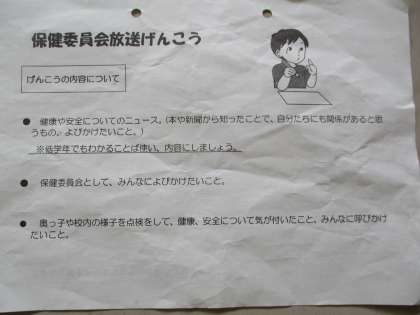 保健委員会放送げんこう
げんこうの内容について
● 健康や安全についてのニュース。(本や新聞から知ったことで、自分たちにも関係があると思
うもの。よびかけたいこと。)
※低学年でもわかることば使い、内容にしましょう。
● 保健委員会として、みんなによびかけたいこと。
● 奥っ子や校内の様子を点検をして、健康、安全について気が付いたこと、みんなに呼びかけ
たいこと。